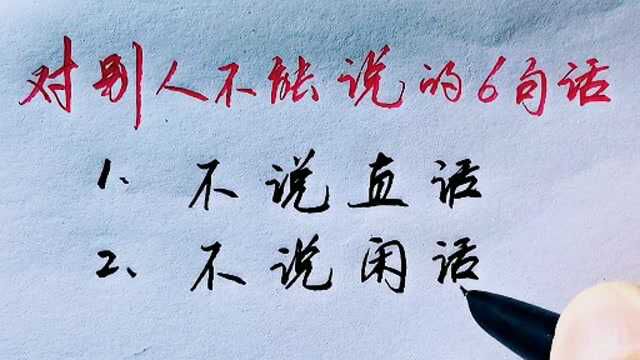 对别人不能说的6句话
1、不说直话
2、不说闲话